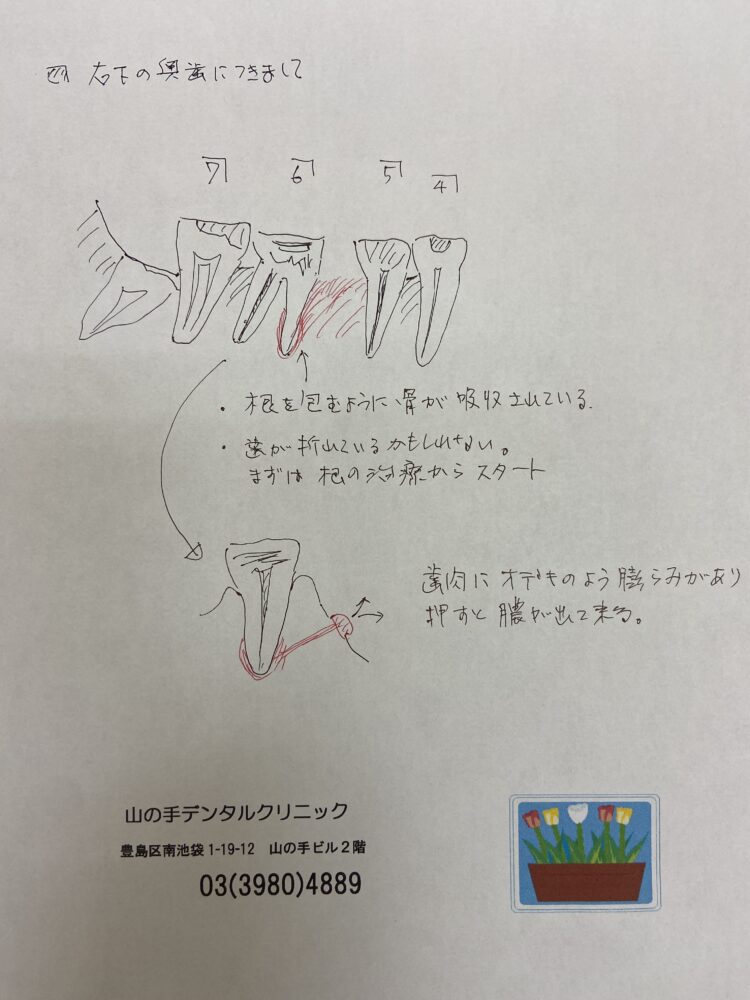 右下の奥歯につきまして
7 6 5 4
・根を包むように骨が吸収されている。
・歯が折れているかもしれない。
まずは根の治療からスタート
歯肉にオデキのよう膨らみがあり
押すと膿が出て来る。
山の手デンタルクリニック
豊島区南池袋1-19-12 山の手ビル2階
03(3980)4889